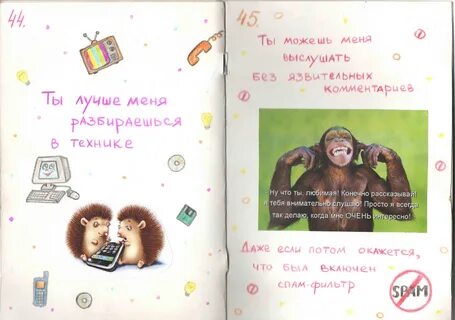 44.
Ты лучше меня
разбираешься
в технике
45.
Ты можешь меня
выслушать
без язвительных
комментариев
Ну что ты, любимая! Конечно рассказывай!
Я тебя внимательно слушаю! Просто я всегда
так делаю, когда мне ОЧЕНЬ интересно!
Даже если потом окажется,
что был включен
спам-фильтр
SPAM